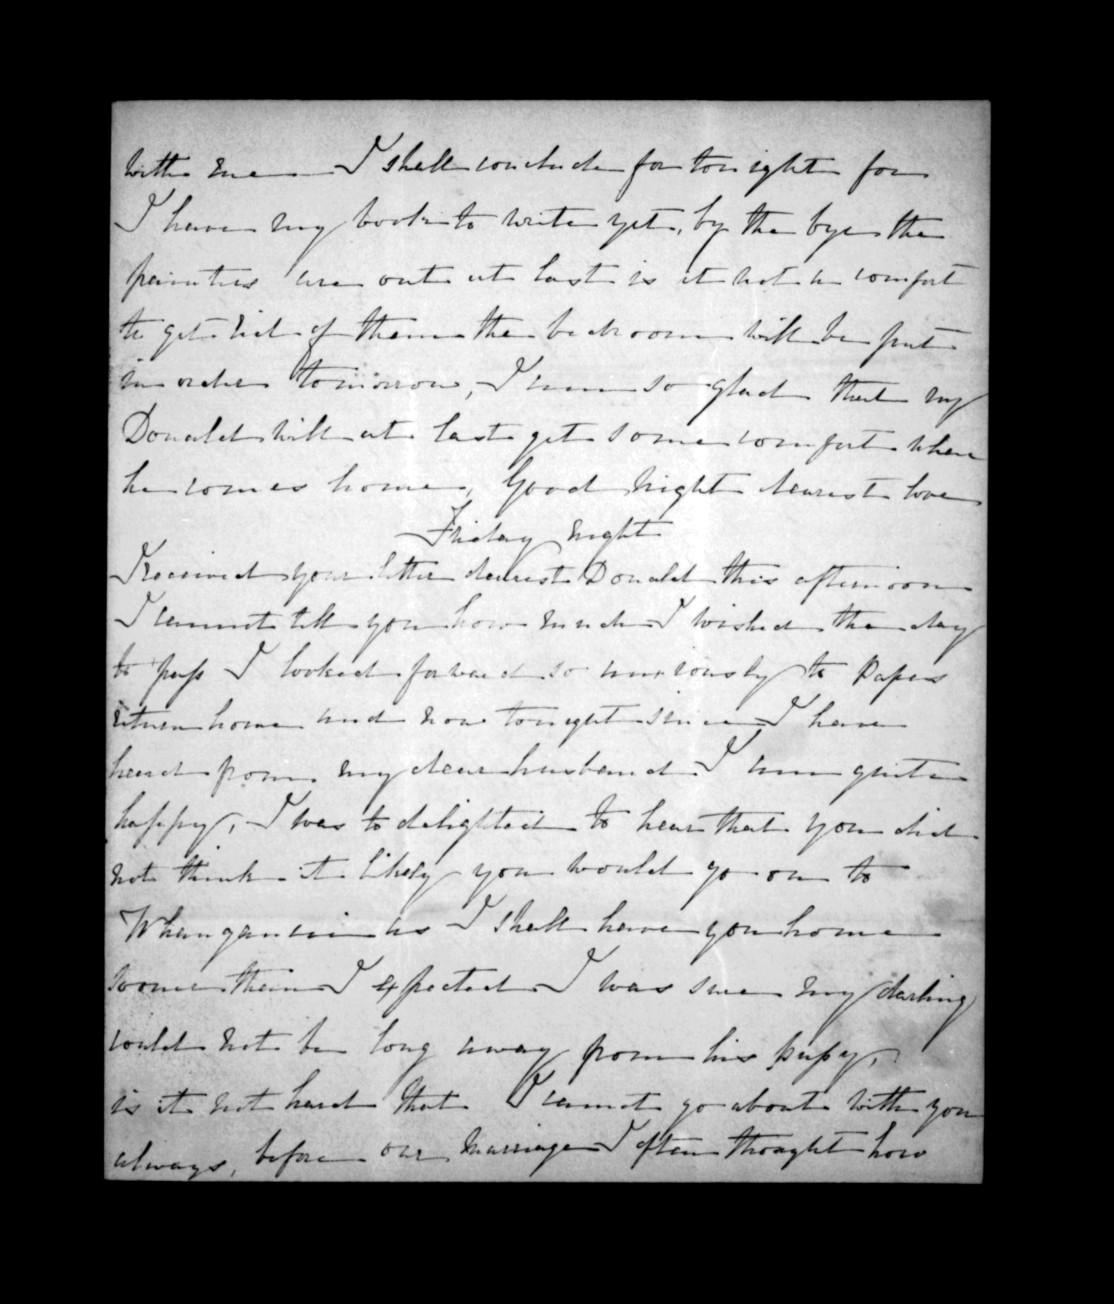 with me I shall conclude for tonight for
I have my book to write yet, by the bye the
painters are out at last is it not a comfort
to get rid of them the bedroom will be put
in order tomorrow, I am so glad that my
Donald will at last get some comfort when
he comes home, Good Night dearest love
Friday night
I received your letter dearest Donald this afternoon
I cannot tell you how much I wished the day
to pass I looked forward so anxiously to Papas
return home and now tonight since I have
heard from my dear husband I am quite
happy, I was to delighted to hear that you did
not think it likely you would go on to
Whanganui as I shall have you home
sooner than I expected I was sure my darling
could not be long away from his pupy,
is it not hard that I cannot go about with you
always, before our marriage I often thought how